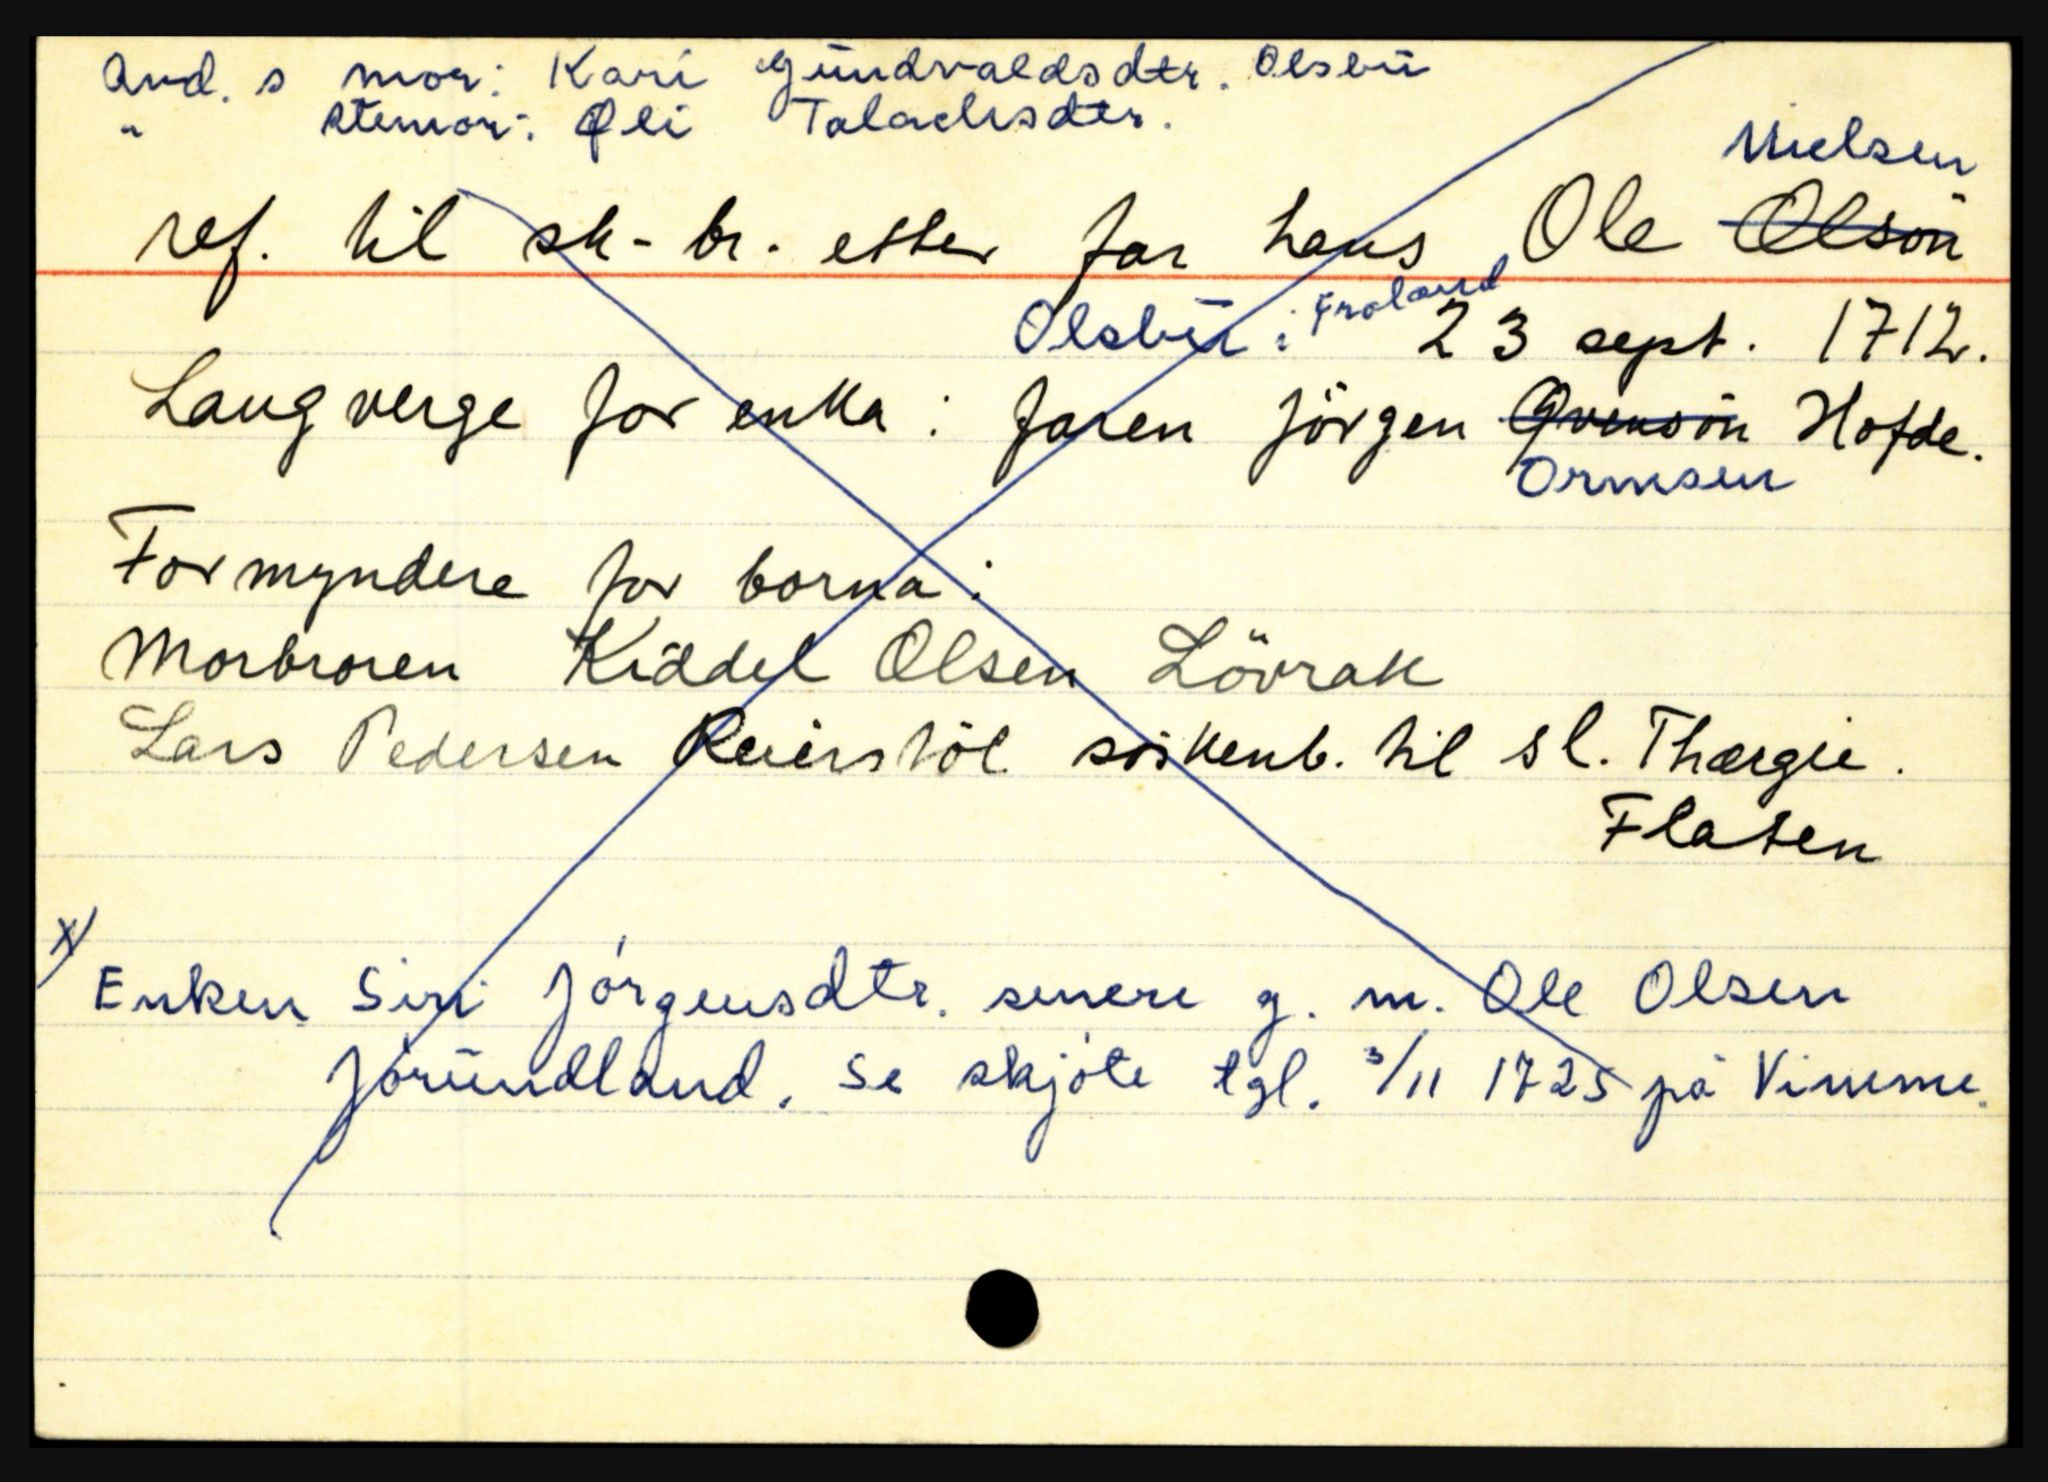 And. s mor: Kari Gundvaldsdtr. Olsbu
" stemor: Øli Talachsdtr.
Nielsen
ref. til sk-br. etter far hans Ole Olsön
Olsbu i Froland 23 sept. 1712.
Laugverge for enka: faren Jörgen Hofde.
Ormsen
Formyndere for borna:
Morbroren Kiddel Olsen Lövrak
Lars Pedersen Reierstöl söskenb. til sl. Thærgie.
Flaten
x) Enken Siri Jørgensdtr. senere g. m. Ole Olsen
Jørundland. Se skjøte tgl. 3/11 1725 på Vimme.